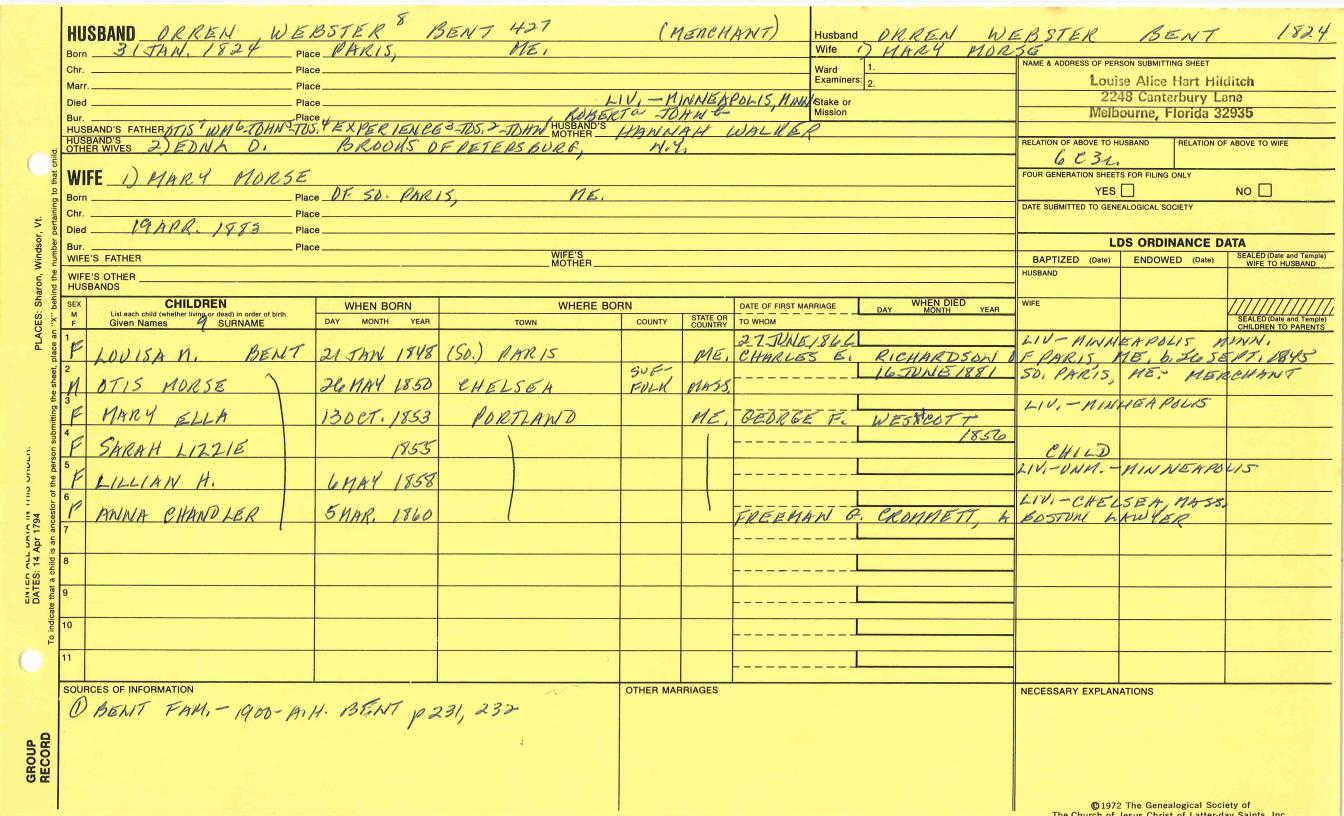 HUSBAND ORREN WEBSTER 8 BENT 427 (MERCHANT)
Born 31 JAN. 1824 Place PARIS, ME.
Chr. Place
Marr. Place
Died Place LIV. - MINNEAPOLIS, MINN
Bur. Place ROBERT JOHN
HUSBAND'S FATHER OTIS7 WM6-JOHN5-JOS.4 EXPERIENCE3-JOS.2-JOHN1 HUSBAND'S MOTHER HANNAH WALKER
HUSBAND'S OTHER WIVES 2) EDNA D. BROOKS OF PETERSBURG, N.Y.
Husband ORREN WEBSTER BENT 1824
Wife 1) MARY MORSE
Ward Examiners: 1.
2.
Stake or Mission
NAME & ADDRESS OF PERSON SUBMITTING SHEET
Louise Alice Hart Hilditch
2248 Canterbury Lane
Melbourne, Florida 32935
RELATION OF ABOVE TO HUSBAND RELATION OF ABOVE TO WIFE
6 C 3r.
FOUR GENERATION SHEETS FOR FILING ONLY
YES NO
DATE SUBMITTED TO GENEALOGICAL SOCIETY
WIFE 1) MARY MORSE
Born Place OF SO. PARIS, ME.
Chr. Place
Died 19 APR. 1883 Place
Bur. Place
WIFE'S FATHER WIFE'S MOTHER
WIFE'S OTHER HUSBANDS
LDS ORDINANCE DATA
BAPTIZED (Date) ENDOWED (Date) SEALED (Date and Temple) WIFE TO HUSBAND
HUSBAND
WIFE
SEALED (Date and Temple) CHILDREN TO PARENTS
SEX M F
CHILDREN
List each child (whether living or dead) in order of birth
Given Names 9 SURNAME
WHEN BORN
DAY MONTH YEAR
WHERE BORN
TOWN COUNTY STATE OR COUNTRY
DATE OF FIRST MARRIAGE
TO WHOM
WHEN DIED
DAY MONTH YEAR
1 27 JUNE, 1866 LIV - MINNEAPOLIS MINN.
F LOUISA M. BENT 21 JAN 1848 (SO.) PARIS ME. CHARLES E. RICHARDSON OF PARIS, ME, b. 26 SEPT. 1845
2 SUF- 16 JUNE 1881 SO. PARIS, ME - MERCHANT
M OTIS MORSE 26 MAY 1850 CHELSEA FOLK MASS.
3 LIV. - MINNEAPOLIS
F MARY ELLA 13 OCT. 1853 PORTLAND ME, GEORGE F. WESTCOTT
4 1856
F SARAH LIZZIE 1855 CHILD
5 LIV. - UNM. - MINNEAPOLIS
F LILLIAN H. 6 MAY 1858
6 LIV. - CHELSEA, MASS.
F ANNA CHANDLER 5 MAR. 1860 FREEMAN O. CROMMETT, A BOSTON LAWYER
7
8
9
10
11
SOURCES OF INFORMATION
① BENT FAM. - 1900 - A.H. BENT p 231, 232
OTHER MARRIAGES
NECESSARY EXPLANATIONS
©1972 The Genealogical Society of
The Church of Jesus Christ of Latter-day Saints, Inc.
PLACES: Sharon, Windsor, Vt.
ENTER ALL DATA IN THIS ORDER:
DATES: 14 Apr 1794
To indicate that a child is an ancestor of the person submitting the sheet, place an "X" behind the number pertaining to that child.
GROUP RECORD